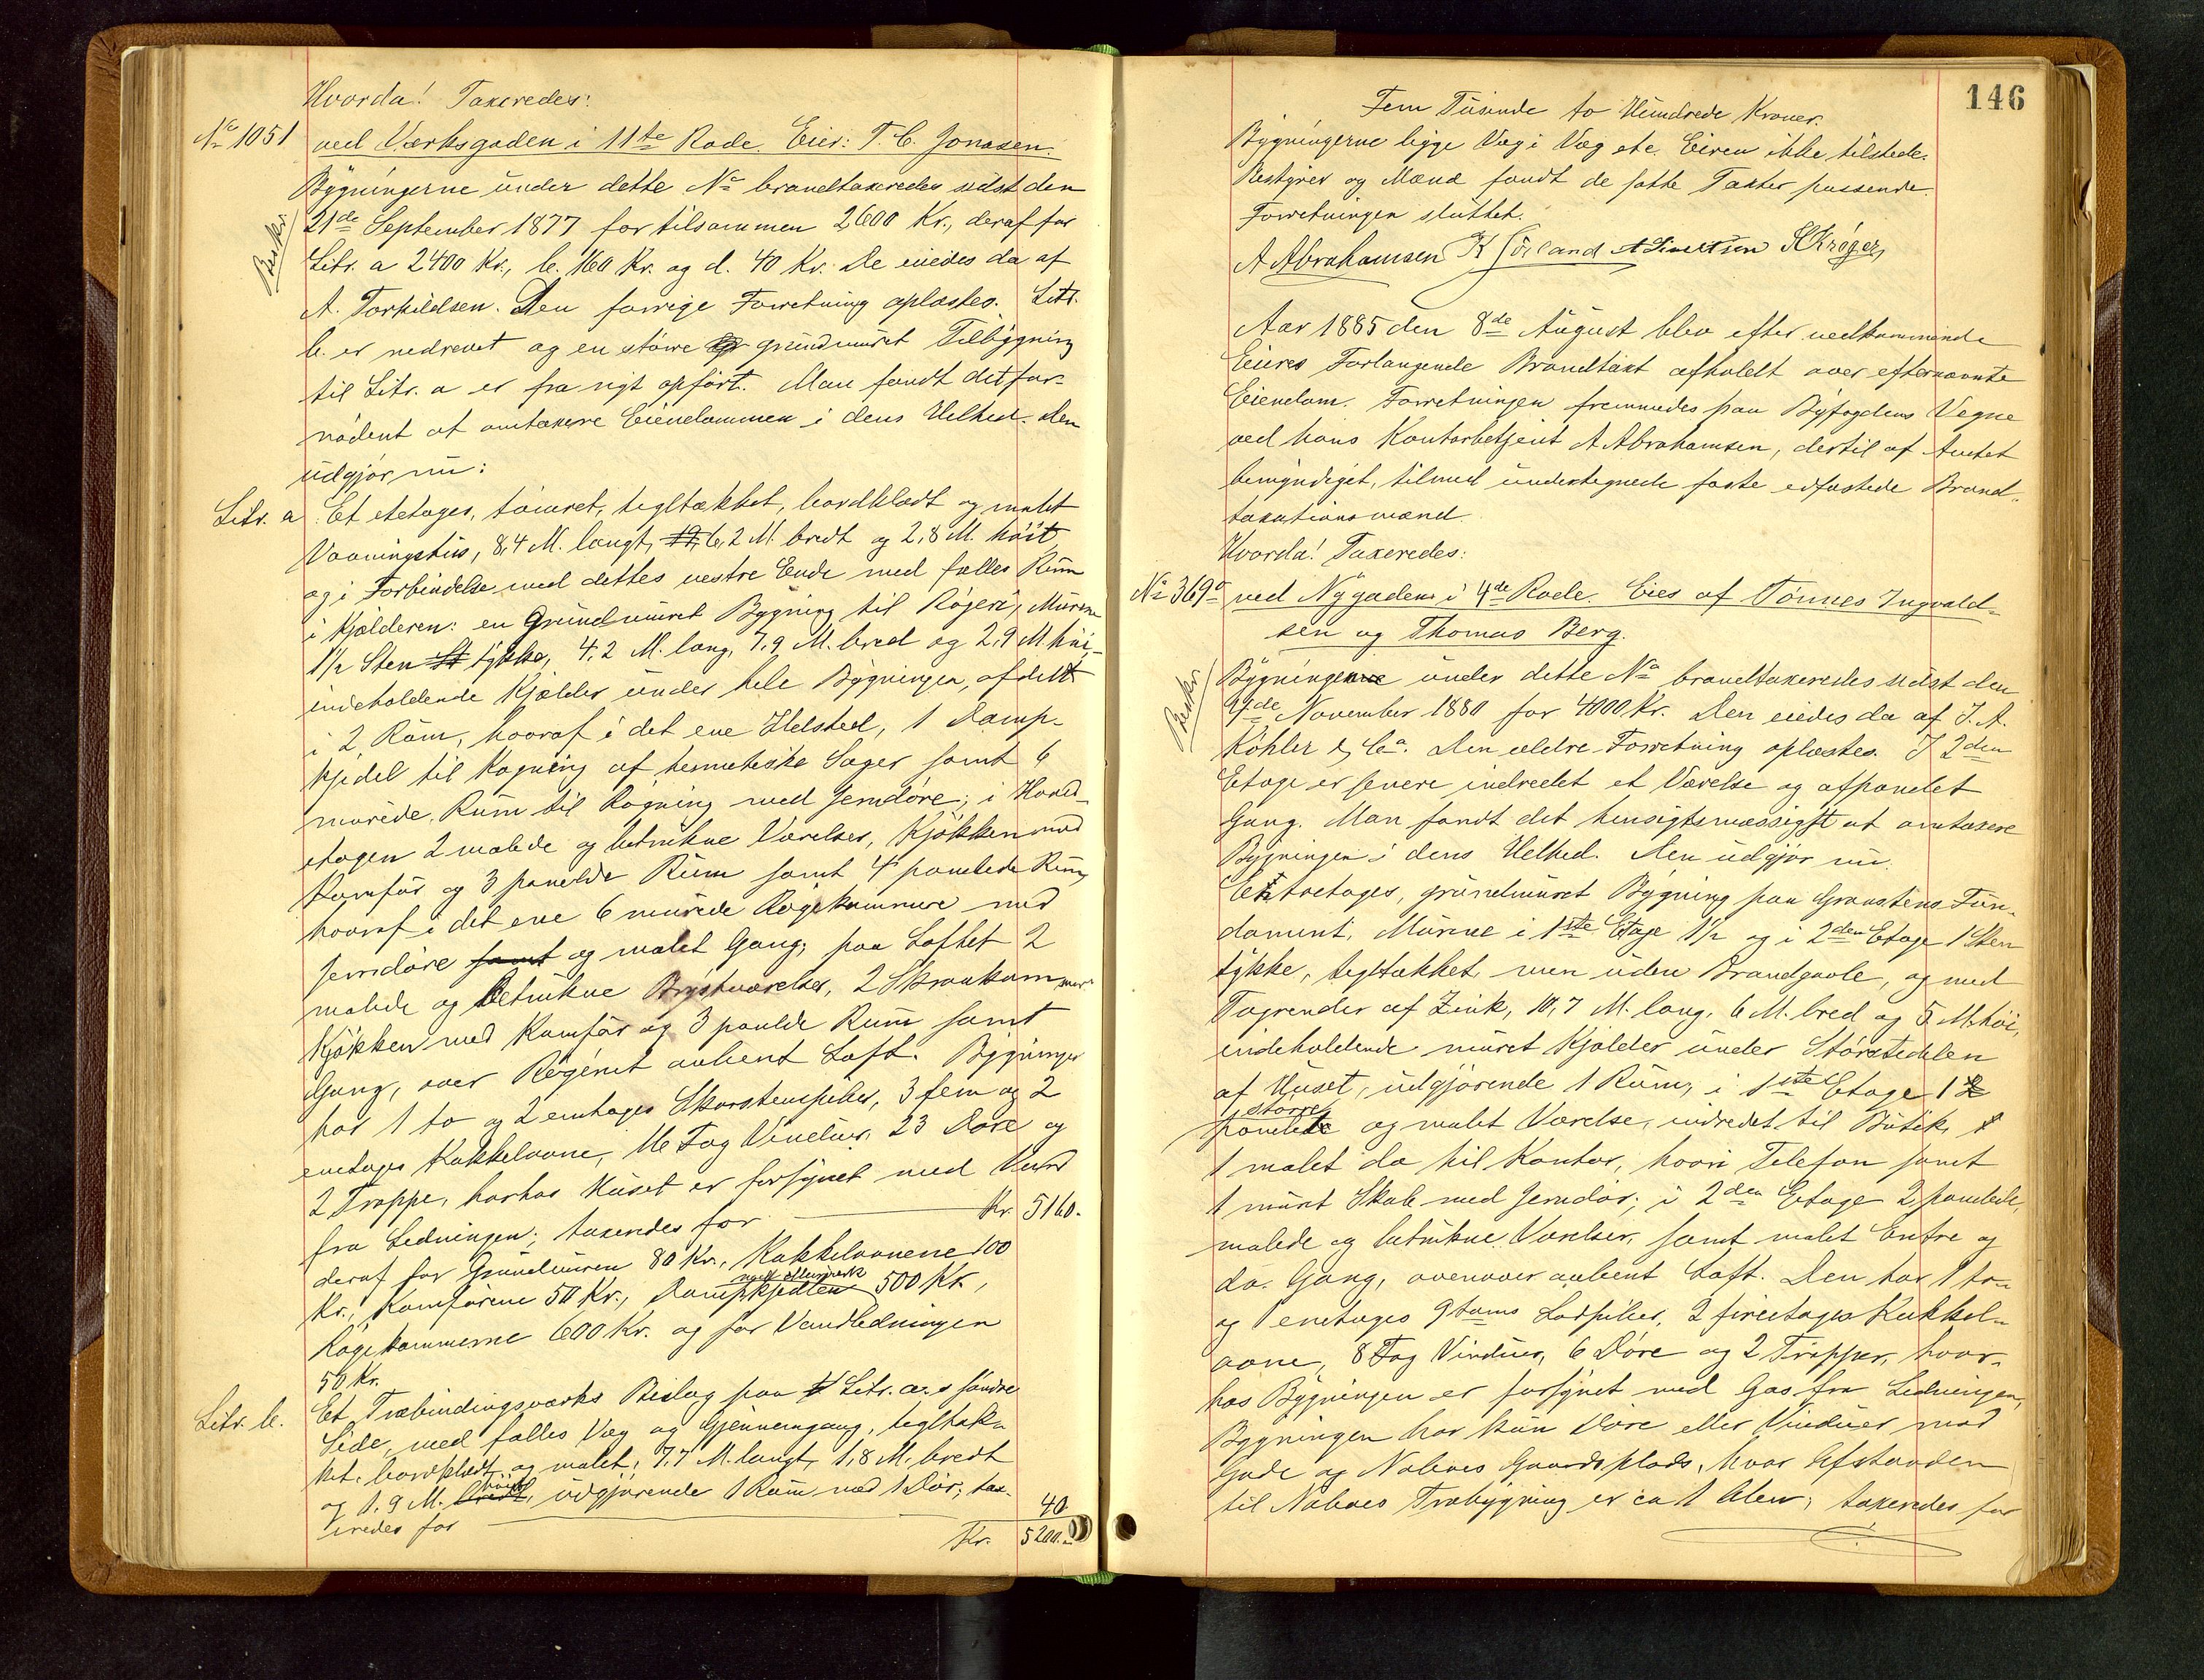 Hvorda! Taxeredes:
No 1051 ved Værksgaden i 11te Rode. Eier: T. C. Jonasen.
Bygningerne under dette No brandtaxeredes sidst den
Beskr.
21de September 1877 for tilsammen 2600 Kr., deraf for
Litr. a 2400 Kr., b. 160 Kr. og d. 40 Kr. De eiedes da af
A. Torkildsen. Den forrige Forretning oplæstes. Litr.
b. er nedrevet og en større grundmuret Tilbygning
til Litr. a er fra nyt opført. Man fandt det for-
nødent at omtaxere Eiendommen i dens Helhed. Den
udgjør nu:
Litr. a. Et etetages, tømret, tegltækket, bordklædt og malet
Vaaningshus, 8,4 M. langt, 6,2 M. bredt og 2,8 M. høit
og i Forbindelse med dettes vestre Ende med fælles Rum
i Kjælderen: en Grundmuret Bygning til Røgeri, Murene
1½ Sten tykke, 4,2 M. lang, 7,9 M. bred og 2,9 M høi,
indeholdende Kjælder under hele Bygningen, afdelt
i 2 Rum, hvoraf i det ene Ildsted, 1 Damp-
kjedel til Kogning af hermetiske Sager samt 6
murede Rum til Røgning med Jerndøre; i Hoved-
etagen 2 malede og betrukne Værelser, Kjøkken med
Komfur og 3 panelde Rum samt 4 panelede Rum,
hvoraf i det ene 6 murede Røgekammere med
Jerndøre samt og malet Gang; paa Loftet 2
malede og betrukne Brystværelser, 2 Skraakammere
Kjøkken med Komfur og 3 panelde Rum samt
Gang, over Røgeriet aabent Loft. Bygningen
har 1 to og 2 enetages Skorstenspiber, 3 fem og 2
enetages Kakkelovne, 16 Fag Vinduer, 23 Døre og
2 Trapper, hvorhos Huset er forsynet med Vand
fra Ledningen; taxeredes for Kr. 5160.
deraf for Grundmuren 80 Kr., Kakkelovnene 100
Kr., Komfurene 50 Kr., Dampkjedlen med Murværk 500 Kr.,
Røgekammerne 600 Kr. og for Vandledningen
50 Kr.
Litr. b. Et Træbindingsværks Bislag paa Litr. a.s søndre
Side, med fælles Væg og Gjennemgang, tegltæk-
ket, bordklædt og malet, 7,7 M. langt, 1,8 M. bredt
og 1.9 M. bredt høit, udgjørende 1 Rum med 1 Dør; tax-
eredes for 40
Kr. 5200.-
146
Fem Tusinde to Hundrede Kroner.
Bygningerne ligge Væg i Væg etc. Eieren ikke tilstede.
Bestyrer og Mænd fandt de satte Taxter passende.
Forretningen sluttet.
A Abrahamsen K Sørland A Sivertsen S Krøger
Aar 1885 den 8de August blev efter vedkommende
Eieres Forlangende Brandtaxt afholdt over efternævnte
Eiendom. Forretningen fremmedes paa Byfogdens Vegne
ved hans Kontorbetjent A Abrahamsen, dertil af Amtet
bemyndiget, tilmed undertegnede faste edfæstede Brand-
taxationsmænd.
Hvorda! Taxeredes:
No 369a ved Nygaden i 4de Rode. Eies af Tønnes Ingvald-
sen og Thomas Berg.
Beskr.
Bygningen under dette No brandtaxeredes sidst den
November 1880 for 4000 Kr. Den eiedes da af J. A.
Köhler & Co. Den ældre Forretning oplæstes. I 2den
Etage er senere indredet et Værelse og afpanelet
Gang. Man fandt det hensigtsmæssigst at omtaxere
Bygningen i dens Helhed. Den udgjør nu:
En toetages, grundmuret Bygning paa Graastens Fun-
dament, Murene i 1ste Etage 1½ og i 2den Etage 1 Sten
tykke, tegltækket, men uden Brandgavle, og med
Tagrender af Zink, 10,7 M. lang, 6 M. bred og 5 M. høi,
indeholdende muret Kjælder under Størstedelen
af Huset, udgjørende 1 Rum; i 1ste Etage 1
større
panelet og malet Værelse, indredet til Butik,
1 malet do til Kontor, hvori Telefon samt
1 muret Skab med Jerndør; i 2den Etage 2 panelede,
malede og betrukne Værelser, samt malet Entre og
do. Gang, ovenover aabent Loft. Den har 1 to-
og 1 enetages 9toms Lodpiber, 2 fireetages Kakkel-
ovne, 8 Fag Vinduer, 6 Døre og 2 Trapper, hvor-
hos Bygningen er forsynet med Gas fra Ledningen,
Bygningen har kun Døre eller Vinduer mod
Gade og Naboes Gaardsplads, hvor Afstanden
til Naboes Træbygning er ca 1 Alen; taxeredes for